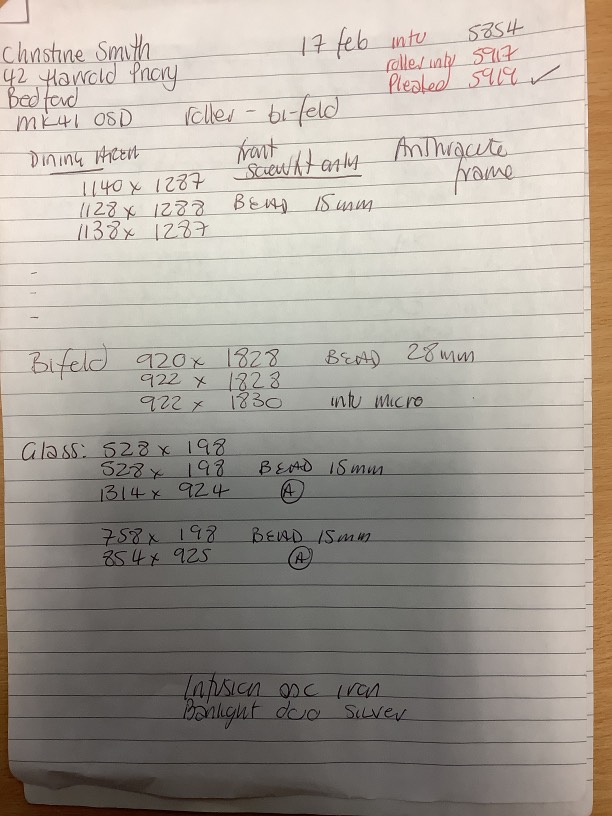 Christine Smith
42 Harrold Priory
Bedford
MK41 0SD
17 feb
intu 5854
roller intu 5917
Pleated 5919 ✓
roller - bi-fold
Dining Area
front screwfit only
Anthracite frame
1140 x 1287
1128 x 1288 BEAD 15mm
1138 x 1287
Bifold 920 x 1828 BEAD 28mm
922 x 1828
922 x 1830 intu micro
Glass: 528 x 198
528 x 198 BEAD 15mm
1314 x 924 A
758 x 198 BEAD 15mm
854 x 925 A
Infusion asc iron
Banlight duo silver